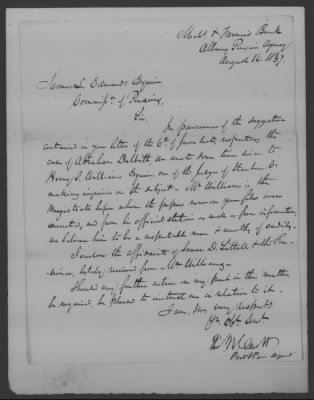 Mech. & Farmers Bank
Albany Pension Agency
August 14. 1837
James L. Edwards Esquire
Commissr. of Pensions,
Sir,
In pursuance of the suggestion
contained in your letter of the 6th of June last, respecting the
case of Abraham we wrote down time since to
Henry S. Williams Esquire, one of the judges of Steuben Co.
making inquiries on the subject. Mr Williams is the
Magistrate before whom the papers now on your files were
executed, and from his official station as well as from information,
we believe him to be a respectable man & worthy of credit.
I enclose the affidavits of Isaac D. & the Pen-
sioner, lately received from Mr Williams.
Should any further action on my part in the matter
be required, be pleased to instruct me in relation to it.
I am, Sir, very respecty
Yr. Obt. Servt
Pension agent